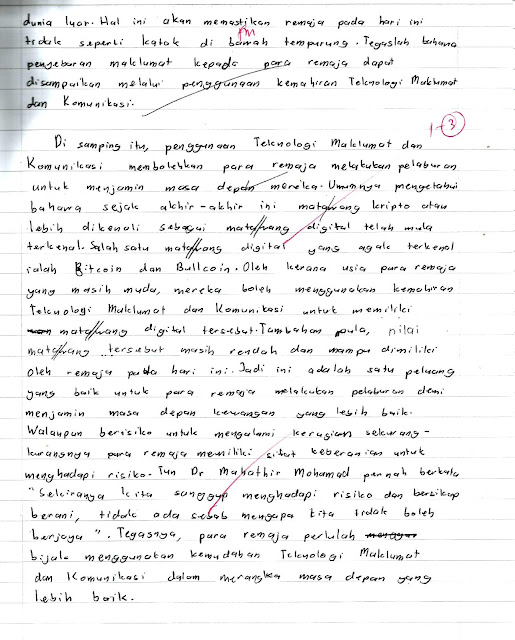 dunia luar. Hal ini akan memastikan remaja pada hari ini
tidak seperti katak di bawah tempurung. Tegaslah bahawa
penyebaran maklumat kepada para remaja dapat
disampaikan melalui penggunaan kemahiran Teknologi Maklumat
dan Komunikasi.
1-3
Di samping itu, penggunaan Teknologi Maklumat dan
Komunikasi membolehkan para remaja melakukan pelaburan
untuk menjamin masa depan mereka. Umumnya mengetahui
bahawa sejak akhir-akhir ini matawang kripto atau
lebih dikenali sebagai mata/wang digital telah mula
terkenal. Salah satu mata/wang digital yang agak terkenal
ialah Bitcoin dan Bullcoin. Oleh kerana usia para remaja
yang masih muda, mereka boleh menggunakan kemahiran
Teknologi Maklumat dan Komunikasi untuk memiliki
mata/wang digital tersebut. Tambahan pula, nilai
mata/wang tersebut masih rendah dan mampu dimiliki
oleh remaja pada hari ini. Jadi ini adalah satu peluang
yang baik untuk para remaja melakukan pelaburan demi
menjamin masa depan kewangan yang lebih baik.
Walaupun berisiko untuk mengalami kerugian sekurang-
kurangnya para remaja memiliki sifat keberanian untuk
menghadapi risiko. Tun Dr Mahathir Mohamad pernah berkata
"Sekiranya kita sanggup menghadapi risiko dan bersikap
berani, tidak ada sebab mengapa kita tidak boleh
berjaya". Tegasnya, para remaja perlulah
bijak menggunakan kemudahan Teknologi Maklumat
dan Komunikasi dalam merangka masa depan yang
lebih baik.